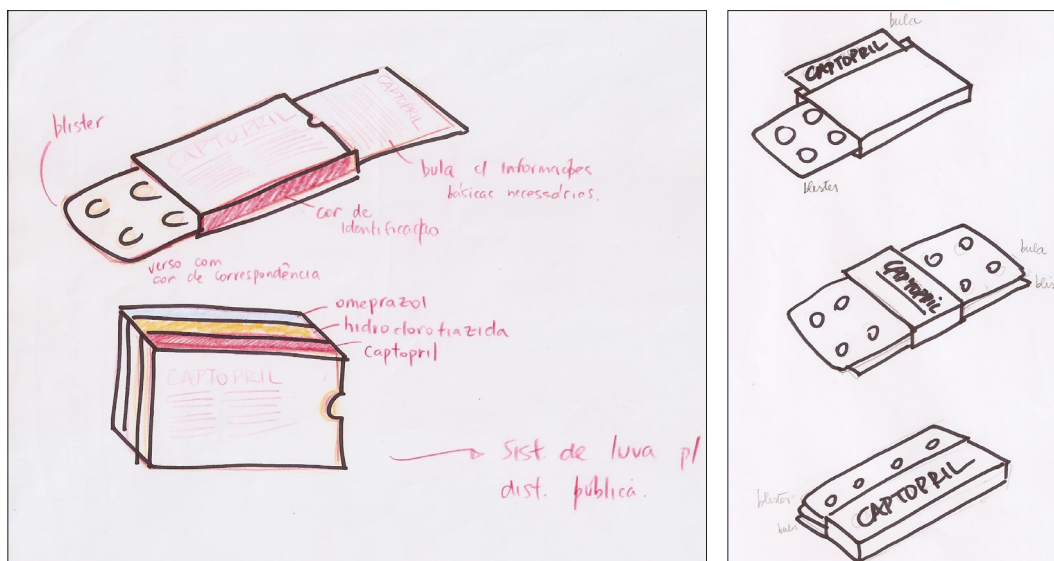 blister
CAPTOPRIL
CAPTOPRIL
bula c/ informações
básicas necessários.
cor de
identificação
verso com
cor de correspondência
omeprazol
hidroclorotiazida
captopril
CAPTOPRIL
Sist. de luva p/
dist. pública.
bula
CAPTOPRIL
blister
bula
blis
CAPTOPRIL
blister
bula
CAPTOPRIL